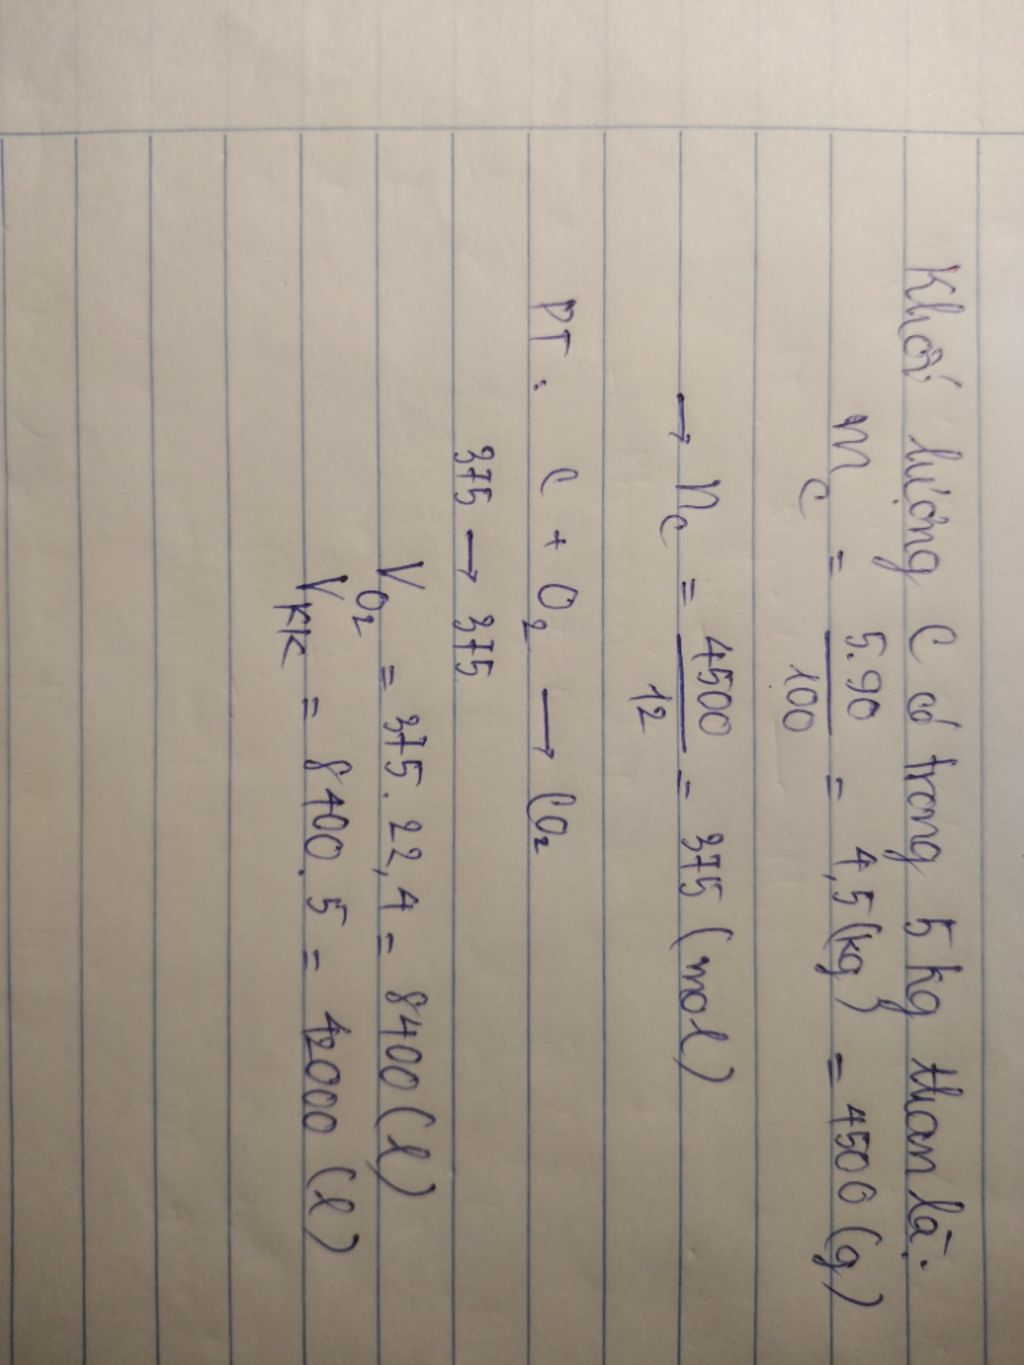 Khối lượng C có trong 5 kg than là:
m_C = 5.90/100 = 4,5 (kg) = 4500 (g)
→ n_C = 4500/12 = 375 (mol)
PT: C + O₂ → CO₂
375 → 375
V_O₂ = 375.22,4 = 8400 (l)
V_KK = 8400.5 = 42000 (l)